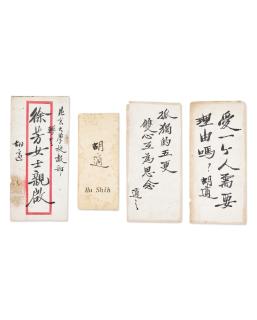 北京大學校
徐芳女士親啟
胡適
胡適
Hu Shih
孤獨的五更
雙心互為思念
適之
愛一个人需要
理由嗎？胡適